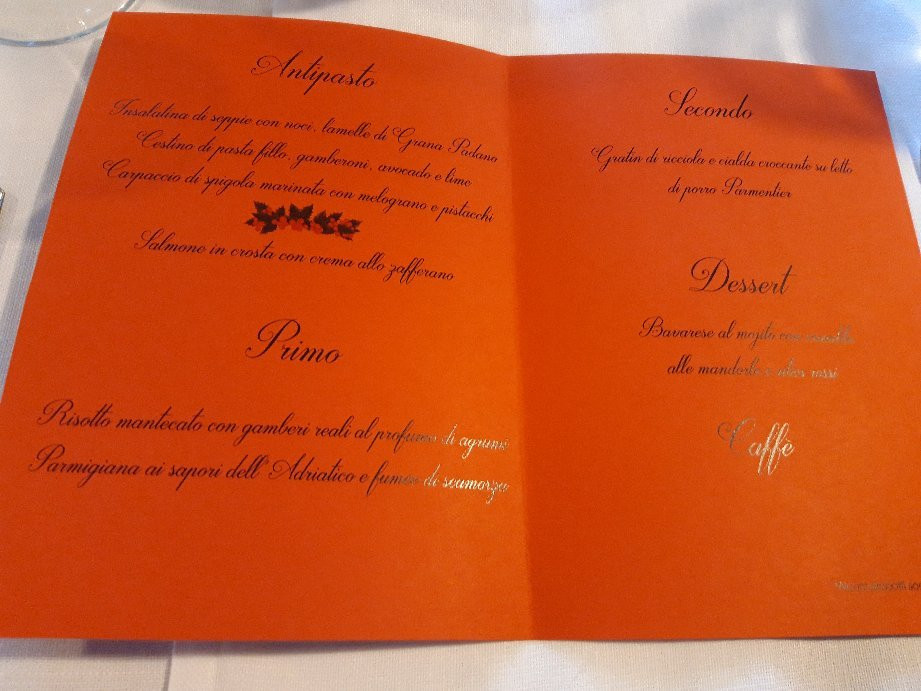 Antipasto
Insalatina di seppie con noci, lamelle di Grana Padano
Cestino di pasta fillo, gamberoni, avocado e lime
Carpaccio di spigola marinata con melograno e pistacchi
Salmone in crosta con crema allo zafferano
Primo
Risotto mantecato con gamberi reali al profumo di agrumi
Parmigiana ai sapori dell' Adriatico e fumèe di scamorza
Secondo
Gratin di ricciola e cialda croccante su letto
di porro Parmentier
Dessert
Bavarese al mojito con
alle mandorle e ribes rossi
Caffè